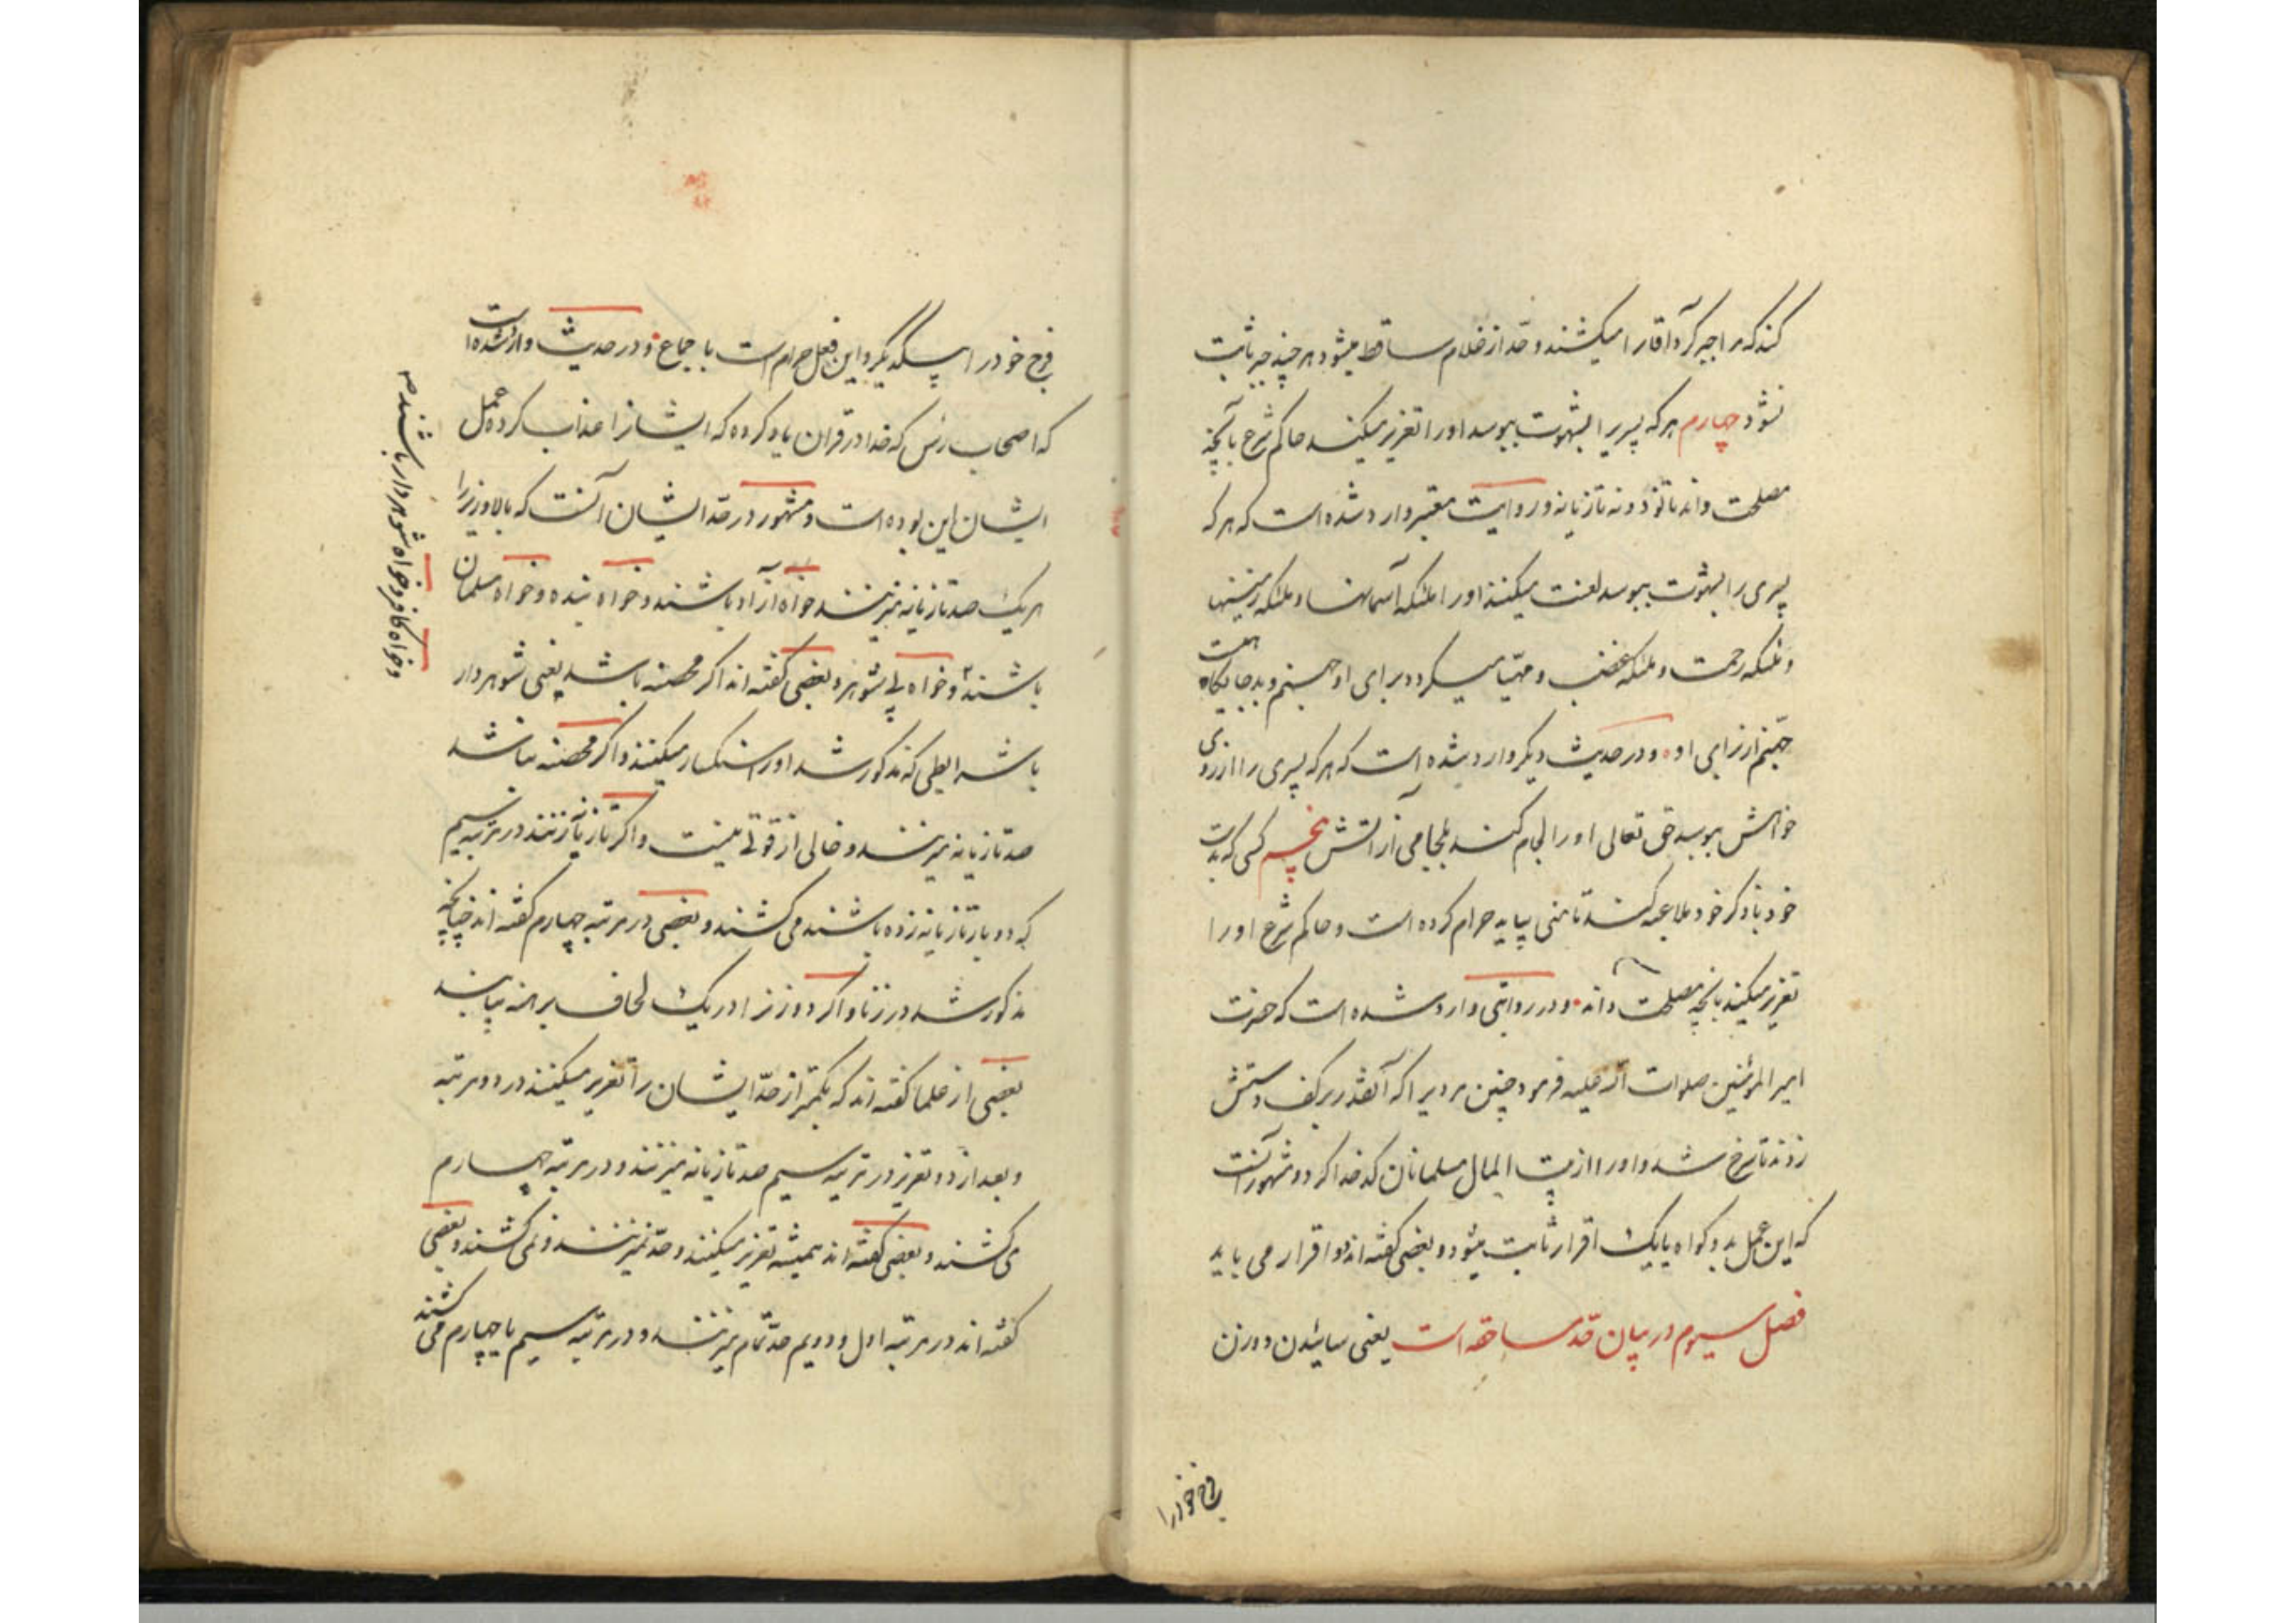 کند که مرا جبر کرد آقا را میکشند و حد از غلام ساقط میشود هر چند جبر ثابت
نشود چهارم هر که پسریرا بشهوت ببوسد اورا تعزیر میکند حاکم شرع بآنچه
مصلحت داند تا نود و نه تازیانه و روایت معتبر وارد شده است که هر که
پسری را بشهوت ببوسد لعنت میکنند اورا ملئکه آسمانها و ملئکه زمینها
و ملئکه رحمت و ملئکه غضب و مهیا میگردد برای او جهنم و بد جایگاهیست
جهنم از برای او و در حدیث دیگر وارد شده است که هر که پسری را از روی
خواهش ببوسد حق تعالی اورا لجام کند بلجامی از آتش پنجم کسی که بدست
خود با ذکر خود ملاعبه کند تا منی بیاید حرام کرده است و حاکم شرع اورا
تعزیر میکند بآنچه مصلحت داند و در روایتی وارد شده است که حضرت
امیر المؤمنین صلوات الله علیه فرمود چنین مردیرا که آنقدر بر کف دستش
زدند تا سرخ شد و اورا از بیت المال مسلمانان کدخدا کرد و مشهور آنست
که این عمل بدو گواه یا بیک اقرار ثابت میشود و بعضی گفته اند دو اقرار می باید
فصل سیوم در بیان حد مساحقه است یعنی سائیدن دو زن
فرج خود را
فرج خود را بیکدیگر و این فعل حرام است باجماع و در حدیث وارد شده است
که اصحاب رس که خدا در قران یاد کرده که ایشانرا عذاب کرده عمل
ایشان این بوده است و مشهور در حد ایشان آنست که بالا و زیر را
هر یک صد تازیانه میزنند خواه آزاد باشند و خواه بنده و خواه مسلمان
باشند و خواه بی شوهر و بعضی گفته اند اگر محصنه باشد یعنی شوهردار
باشرایطی که مذکور شد اورا سنگسار میکنند و اگر محصنه نباشد
صد تازیانه میزنند و خالی از قوتی نیست و اگر تازیانه زنند در مرتبه سیم
که دو بار تازیانه زده باشند می کشند و بعضی در مرتبه چهارم گفته اند چنانچه
مذکور شد در زنا و اگر دو زنرا در یک لحاف برهنه بیابند
بعضی از علما گفته اند که بکمتر از حد ایشان را تعزیر میکنند در دو مرتبه
و بعد از دو تعزیر در مرتبه سیم صد تازیانه میزنند و در مرتبه چهارم
می کشند و بعضی گفته اند همیشه تعزیر میکنند و حد نمیزنند و نمی کشند و بعضی
گفته اند در مرتبه اول و دویم حد تمام میزنند و در مرتبه سیم یا چهارم می کشند
و خواه کافر و خواه شوهردار باشند